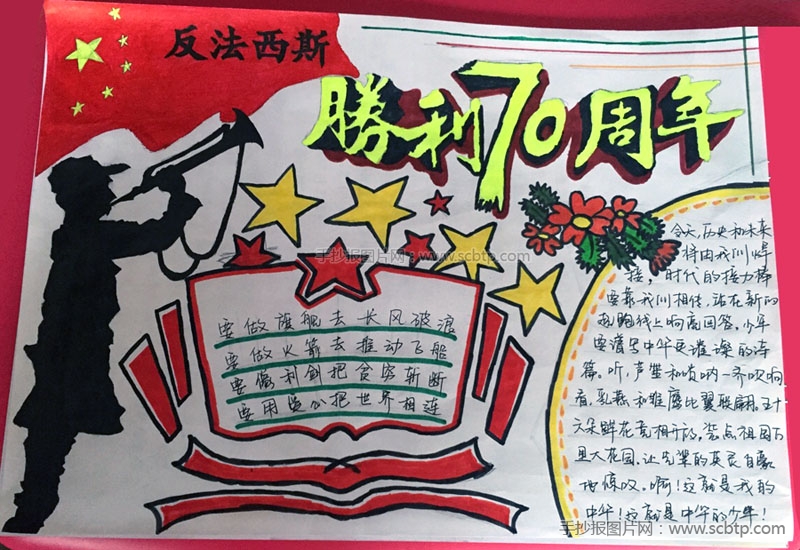 反法西斯
勝利70周年
手抄报图片网:www.scbtp.com
要做旗舰去长风破浪
要做火箭去推动飞船
要像利剑把贪穷斩断
要用爱心把世界相连
今天,历史和未来
将由我们焊
接,时代的接力棒
要靠我们相传,站在新的
起跑线上响亮回答,少年
要谱写中华更璀璨的诗
篇。听,芦笙和唢呐一齐吹响
看,乳燕和雄鹰比翼联翩,五十
六朵鲜花竞相开放,装点祖国万
里大花园,让先辈的英灵自豪
地慨叹。啊!这就是我的
中华!这就是中华的少年!
手抄报图片网:www.scbtp.com